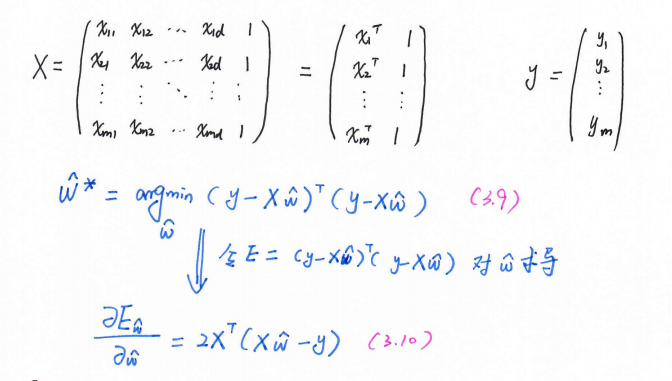 X = ( x₁₁ x₁₂ ⋯ x₁d 1 ; x₂₁ x₂₂ ⋯ x₂d 1 ; ⋮ ⋮ ⋱ ⋮ ⋮ ; xm₁ xm₂ ⋯ xmd 1 ) = ( x₁ᵀ 1 ; x₂ᵀ 1 ; ⋮ ⋮ ; xmᵀ 1 ) y = ( y₁ ; y₂ ; ⋮ ; ym )
ŵ* = argmin ŵ (y-Xŵ)ᵀ(y-Xŵ) (3.9)
令E = (y-Xŵ)ᵀ(y-Xŵ) 对ŵ求导
∂Eŵ/∂ŵ = 2Xᵀ(Xŵ-y) (3.10)